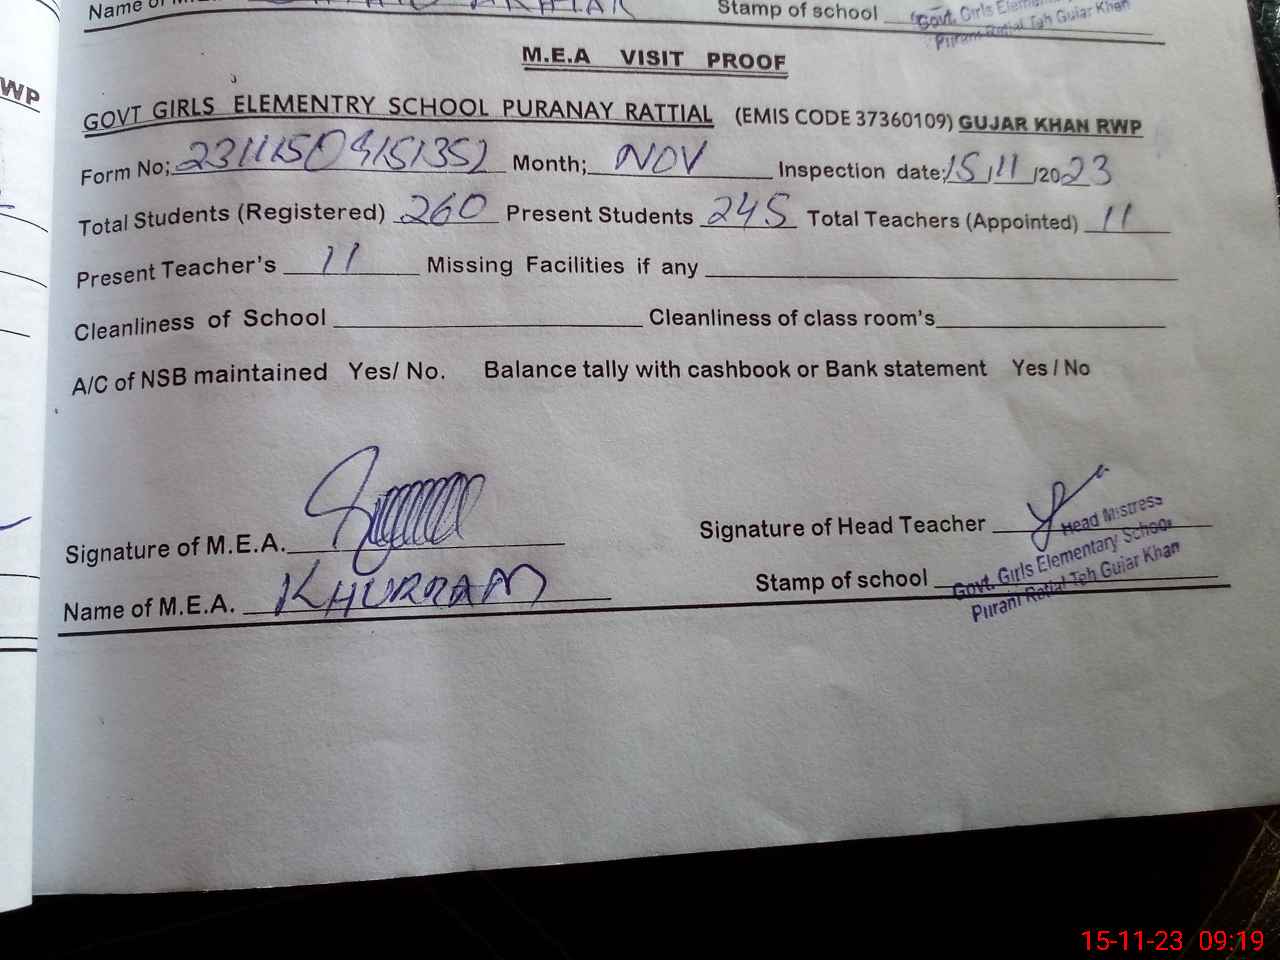 Name of M.E.A. Stamp of school
Govt. Girls Elementary
Purani Ratial Teh Gujar Khan
WP
M.E.A VISIT PROOF
GOVT GIRLS ELEMENTRY SCHOOL PURANAY RATTIAL (EMIS CODE 37360109) GUJAR KHAN RWP
Form No; Month; NOV Inspection date; 15/11/2023
Total Students (Registered) 260 Present Students 245 Total Teachers (Appointed) 11
Present Teacher's 11 Missing Facilities if any
Cleanliness of School Cleanliness of class room's
A/C of NSB maintained Yes/ No. Balance tally with cashbook or Bank statement Yes / No
Signature of M.E.A. Signature of Head Teacher
Head Mistress
Name of M.E.A. KHURRAM Stamp of school
Govt. Girls Elementary School
Purani Ratial Teh Gujar Khan
15-11-23 09:19